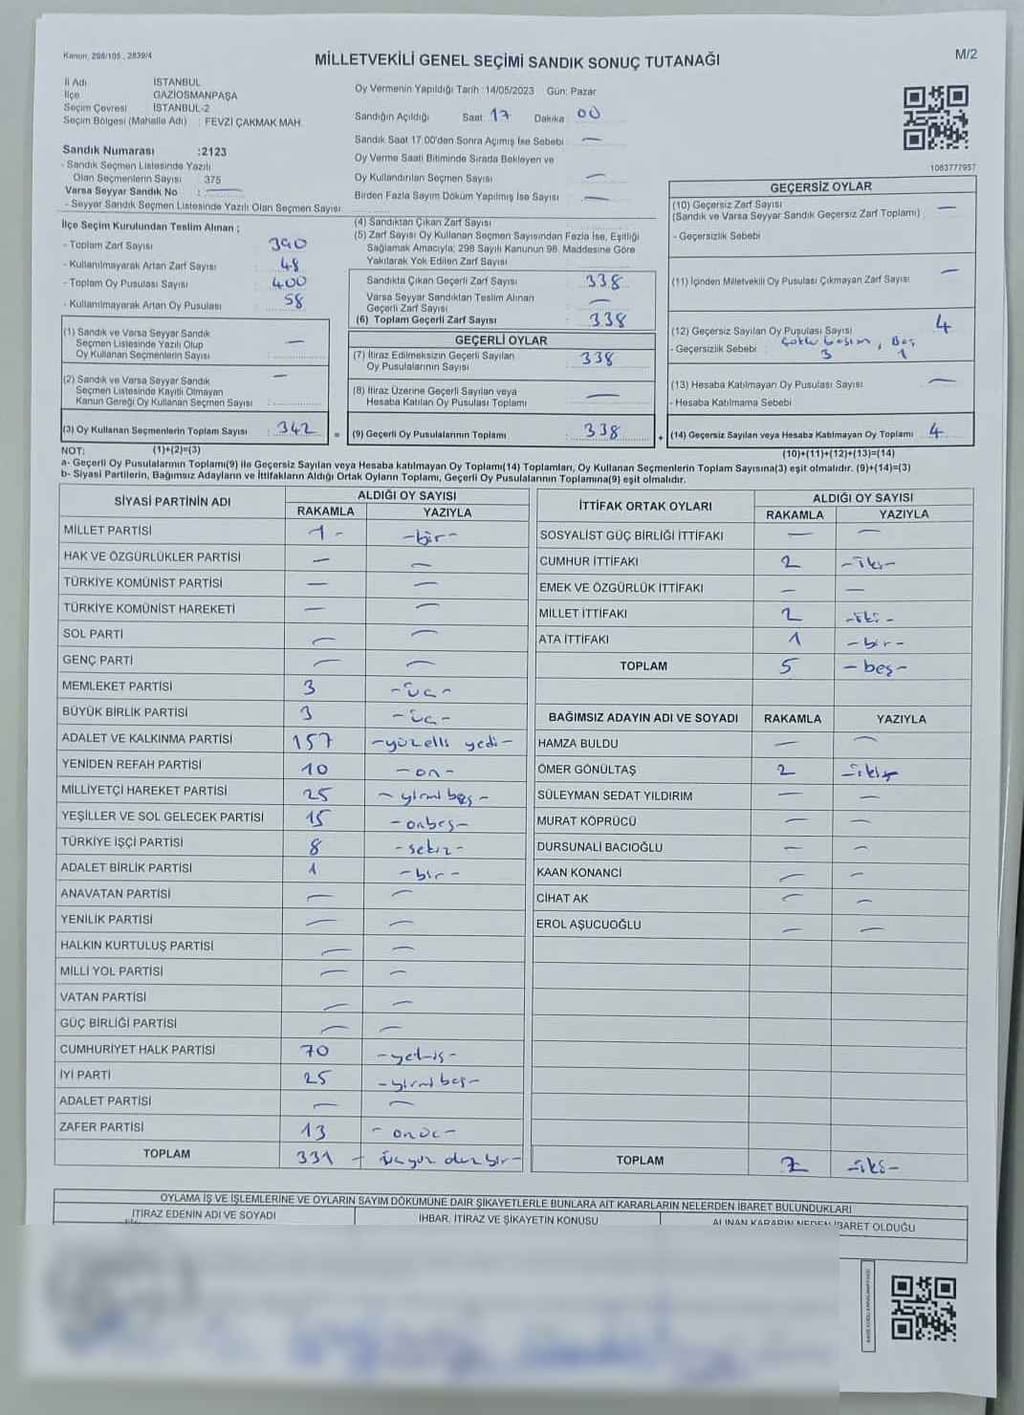 Kanun: 298/105., 2839/4
MİLLETVEKİLİ GENEL SEÇİMİ SANDIK SONUÇ TUTANAĞI
M/2
İl Adı İSTANBUL
İlçe GAZİOSMANPAŞA
Seçim Çevresi İSTANBUL-2
Seçim Bölgesi (Mahalle Adı) : FEVZİ ÇAKMAK MAH.
Oy Vermenin Yapıldığı Tarih :14/05/2023 Gün: Pazar
Sandığın Açıldığı Saat 17 Dakika 00
Sandık Saat 17:00'den Sonra Açılmış İse Sebebi —
Oy Verme Saati Bitiminde Sırada Bekleyen ve
Oy Kullandırılan Seçmen Sayısı —
Birden Fazla Sayım Döküm Yapılmış İse Sayısı —
1083777957
Sandık Numarası :2123
- Sandık Seçmen Listesinde Yazılı
Olan Seçmenlerin Sayısı 375
Varsa Seyyar Sandık No : —
- Seyyar Sandık Seçmen Listesinde Yazılı Olan Seçmen Sayısı
İlçe Seçim Kurulundan Teslim Alınan ;
- Toplam Zarf Sayısı 390
- Kullanılmayarak Artan Zarf Sayısı 48
- Toplam Oy Pusulası Sayısı 400
- Kullanılmayarak Artan Oy Pusulası 58
(1) Sandık ve Varsa Seyyar Sandık
Seçmen Listesinde Yazılı Olup
Oy Kullanan Seçmenlerin Sayısı —
(2) Sandık ve Varsa Seyyar Sandık
Seçmen Listesinde Kayıtlı Olmayan
Kanun Gereği Oy Kullanan Seçmen Sayısı —
(3) Oy Kullanan Seçmenlerin Toplam Sayısı 342
(1)+(2)=(3)
(4) Sandıktan Çıkan Zarf Sayısı
(5) Zarf Sayısı Oy Kullanan Seçmen Sayısından Fazla İse, Eşitliği
Sağlamak Amacıyla; 298 Sayılı Kanunun 98. Maddesine Göre
Yakılarak Yok Edilen Zarf Sayısı
Sandıkta Çıkan Geçerli Zarf Sayısı 338
Varsa Seyyar Sandıktan Teslim Alınan
Geçerli Zarf Sayısı —
(6) Toplam Geçerli Zarf Sayısı 338
GEÇERLİ OYLAR
(7) İtiraz Edilmeksizin Geçerli Sayılan
Oy Pusulalarının Sayısı 338
(8) İtiraz Üzerine Geçerli Sayılan veya
Hesaba Katılan Oy Pusulası Toplamı —
= (9) Geçerli Oy Pusulalarının Toplamı 338
GEÇERSİZ OYLAR
(10) Geçersiz Zarf Sayısı —
(Sandık ve Varsa Seyyar Sandık Geçersiz Zarf Toplamı)
- Geçersizlik Sebebi
(11) İçinden Milletvekili Oy Pusulası Çıkmayan Zarf Sayısı —
(12) Geçersiz Sayılan Oy Pusulası Sayısı 4
- Geçersizlik Sebebi Çoklu basım, Boş
3 1
(13) Hesaba Katılmayan Oy Pusulası Sayısı —
- Hesaba Katılmama Sebebi
+ (14) Geçersiz Sayılan veya Hesaba Katılmayan Oy Toplamı 4
(10)+(11)+(12)+(13)=(14)
NOT:
a- Geçerli Oy Pusulalarının Toplamı(9) ile Geçersiz Sayılan veya Hesaba katılmayan Oy Toplamı(14) Toplamları, Oy Kullanan Seçmenlerin Toplam Sayısına(3) eşit olmalıdır. (9)+(14)=(3)
b- Siyasi Partilerin, Bağımsız Adayların ve İttifakların Aldığı Ortak Oyların Toplamı, Geçerli Oy Pusulalarının Toplamına(9) eşit olmalıdır.
SİYASİ PARTİNİN ADI ALDIĞI OY SAYISI
RAKAMLA YAZIYLA
MİLLET PARTİSİ 1 - -bir-
HAK VE ÖZGÜRLÜKLER PARTİSİ — —
TÜRKİYE KOMÜNİST PARTİSİ — —
TÜRKİYE KOMÜNİST HAREKETİ — —
SOL PARTİ — —
GENÇ PARTİ — —
MEMLEKET PARTİSİ 3 -üç-
BÜYÜK BİRLİK PARTİSİ 3 -üç-
ADALET VE KALKINMA PARTİSİ 157 -yüzelli yedi-
YENİDEN REFAH PARTİSİ 10 -on-
MİLLİYETÇİ HAREKET PARTİSİ 25 -yirmi beş-
YEŞİLLER VE SOL GELECEK PARTİSİ 15 -onbeş-
TÜRKİYE İŞÇİ PARTİSİ 8 -sekiz-
ADALET BİRLİK PARTİSİ 1 -bir-
ANAVATAN PARTİSİ — —
YENİLİK PARTİSİ — —
HALKIN KURTULUŞ PARTİSİ — —
MİLLİ YOL PARTİSİ — —
VATAN PARTİSİ — —
GÜÇ BİRLİĞİ PARTİSİ — —
CUMHURİYET HALK PARTİSİ 70 -yetmiş-
İYİ PARTİ 25 -yirmi beş-
ADALET PARTİSİ — —
ZAFER PARTİSİ 13 -onüç-
TOPLAM 331 - üçyüz otuz bir-
İTTİFAK ORTAK OYLARI ALDIĞI OY SAYISI
RAKAMLA YAZIYLA
SOSYALİST GÜÇ BİRLİĞİ İTTİFAKI — —
CUMHUR İTTİFAKI 2 -iki-
EMEK VE ÖZGÜRLÜK İTTİFAKI — —
MİLLET İTTİFAKI 2 -iki-
ATA İTTİFAKI 1 -bir-
TOPLAM 5 -beş-
BAĞIMSIZ ADAYIN ADI VE SOYADI RAKAMLA YAZIYLA
HAMZA BULDU — —
ÖMER GÖNÜLTAŞ 2 -iki-
SÜLEYMAN SEDAT YILDIRIM — —
MURAT KÖPRÜCÜ — —
DURSUNALİ BACIOĞLU — —
KAAN KONANCİ — —
CİHAT AK — —
EROL AŞUCUOĞLU — —
TOPLAM 2 -iki-
OYLAMA İŞ VE İŞLEMLERİNE VE OYLARIN SAYIM DÖKÜMÜNE DAİR ŞİKAYETLERLE BUNLARA AİT KARARLARIN NELERDEN İBARET BULUNDUKLARI
İTİRAZ EDENİN ADI VE SOYADI İHBAR, İTİRAZ VE ŞİKAYETİN KONUSU ALINAN KARARIN NEDEN İBARET OLDUĞU